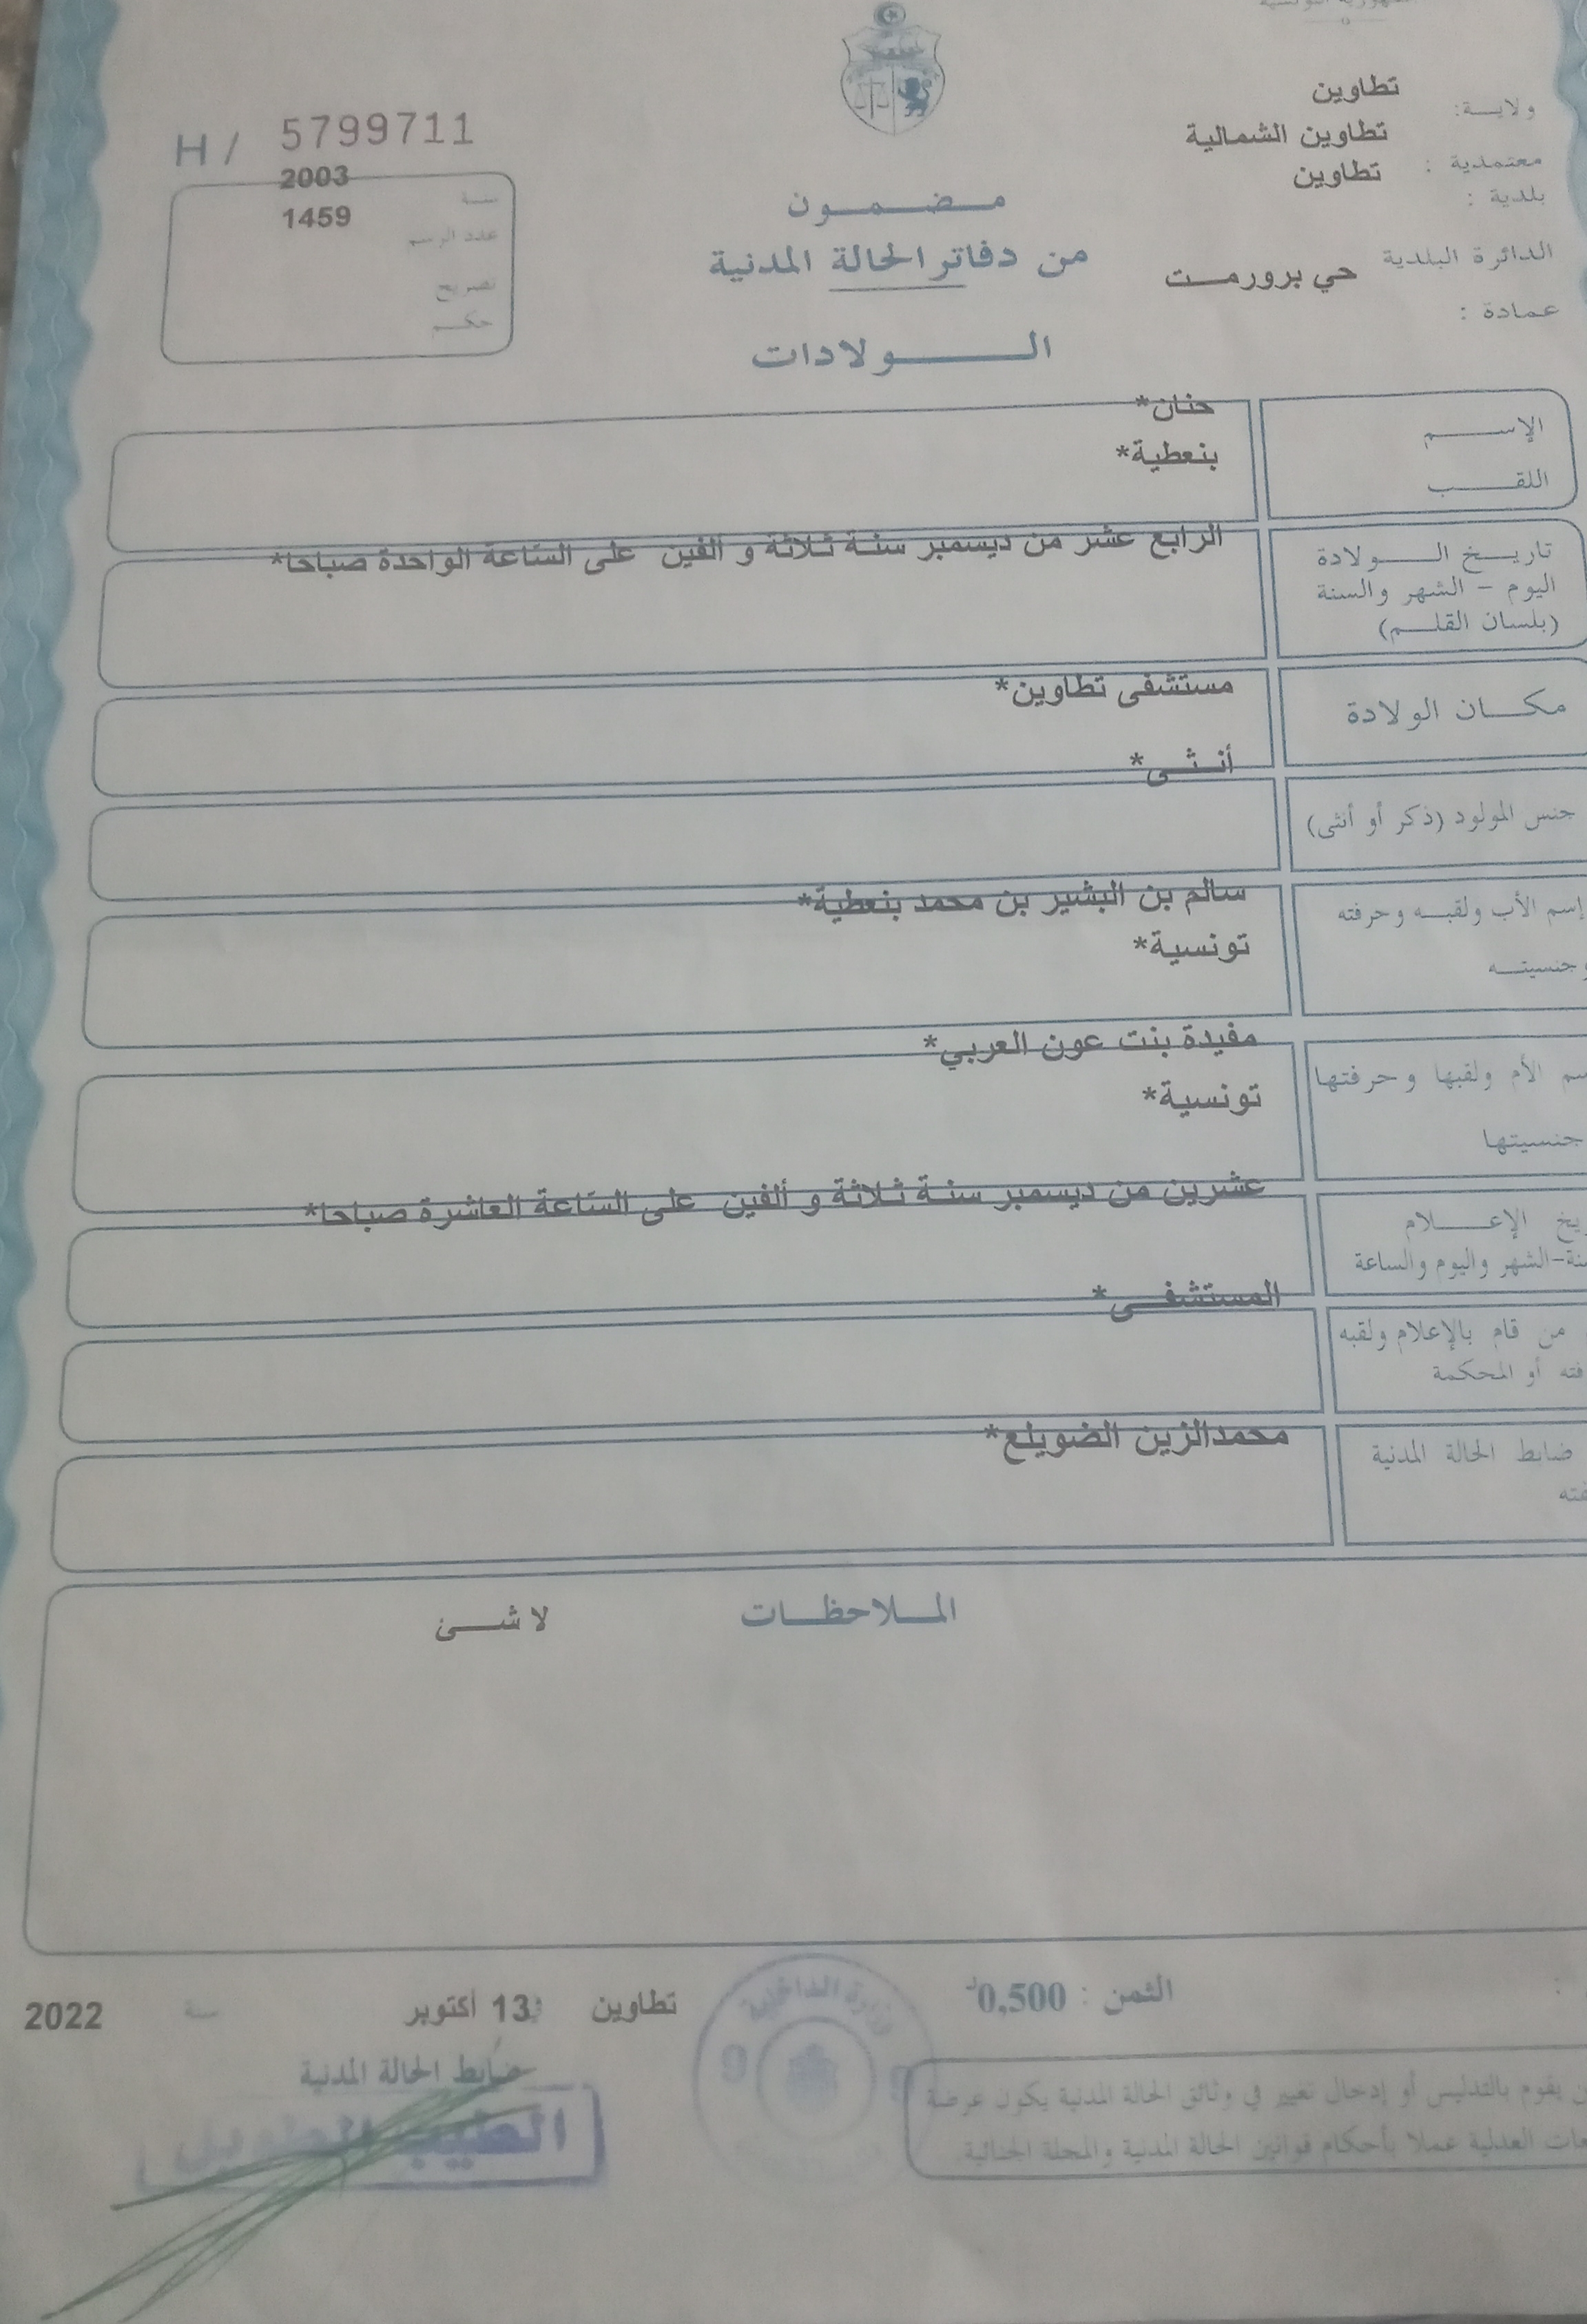 ولايـة: تطاوين
معتمدية : تطاوين الشمالية
بلدية : تطاوين
الدائرة البلدية حي برورمت
عمادة :
H / 5799711
سنة 2003
عدد الرسم 1459
تصريح
حكم
مضمون
من دفاتر الحالة المدنية
الولادات
الإسم حنان*
اللقب بنعطية*
تاريخ الولادة الرابع عشر من ديسمبر سنة ثلاثة و ألفين على الساعة الواحدة صباحا*
اليوم - الشهر والسنة
(بلسان القلم)
مكان الولادة مستشفى تطاوين*
جنس المولود (ذكر أو أنثى) أنثى*
إسم الأب ولقبه وحرفته سالم بن البشير بن محمد بنعطية*
وجنسيته تونسية*
سم الأم ولقبها وحرفتها مفيدة بنت عون العربي*
جنسيتها تونسية*
ريخ الإعلام عشرين من ديسمبر سنة ثلاثة و ألفين على الساعة العاشرة صباحا*
نة-الشهر واليوم والساعة
من قام بالإعلام ولقبه المستشفى*
فته أو المحكمة
ضابط الحالة المدنية محمدالزين الضويلع*
فته
الملاحظات لا شئ
الثمن : 0,500د
تطاوين 13 أكتوبر سنة 2022
ضابط الحالة المدنية
وزارة الداخلية
9
ن يقوم بالتدليس أو إدخال تغيير في وثائق الحالة المدنية يكون عرضة
عات العدلية عملا بأحكام قوانين الحالة المدنية والمجلة الجنائية.